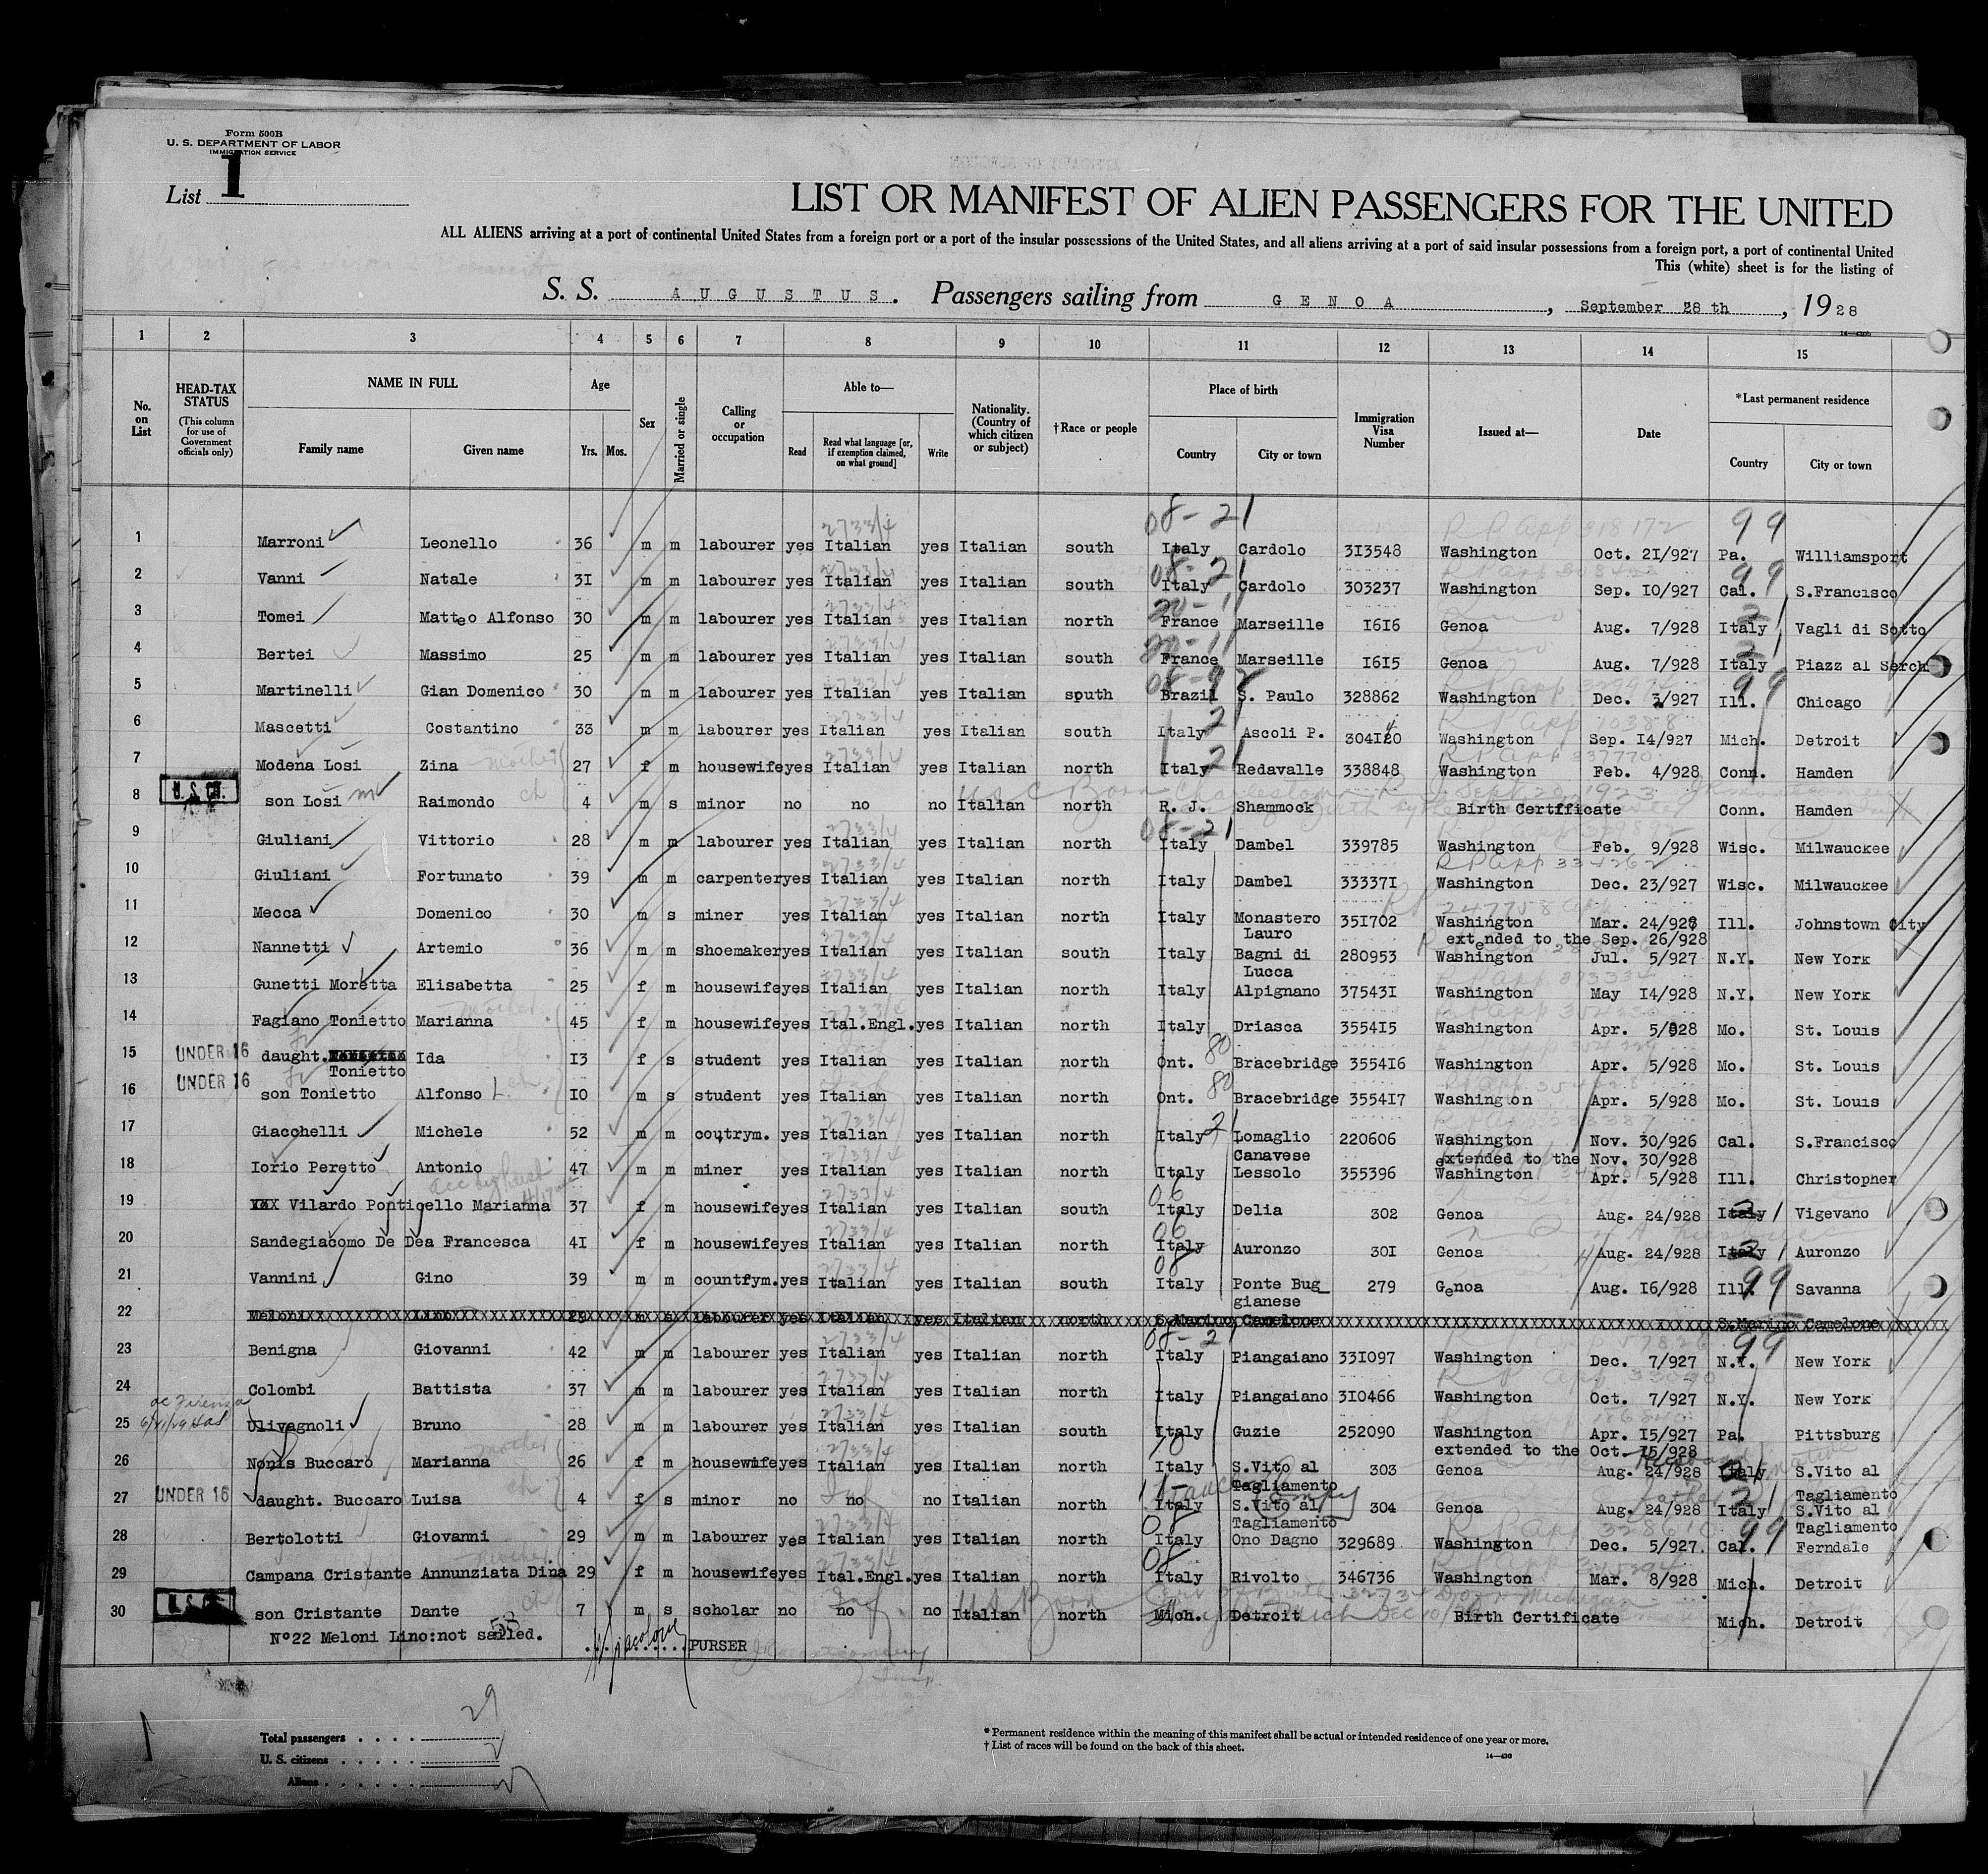 Form 500B
U. S. DEPARTMENT OF LABOR
IMMIGRATION SERVICE
List 1
LIST OR MANIFEST OF ALIEN PASSENGERS FOR THE UNITED
ALL ALIENS arriving at a port of continental United States from a foreign port or a port of the insular possessions of the United States, and all aliens arriving at a port of said insular possessions from a foreign port, a port of continental United
This (white) sheet is for the listing of
S. S. AUGUSTUS. Passengers sailing from GENOA, September 28 th, 1928
1 2 3 4 5 6 7 8 9 10 11 12 13 14 15
No. on List
HEAD-TAX STATUS (This column for use of Government officials only)
NAME IN FULL Family name Given name
Age Yrs. Mos.
Sex
Married or single
Calling or occupation
Able to— Read Read what language [or, if exemption claimed, on what ground] Write
Nationality. (Country of which citizen or subject)
†Race or people
Place of birth Country City or town
Immigration Visa Number
Issued at—
Date
*Last permanent residence Country City or town
1 Marroni Leonello 36 m m labourer yes Italian yes Italian south Italy Cardolo 313548 Washington Oct. 21/927 Pa. Williamsport
2 Vanni Natale 31 m m labourer yes Italian yes Italian south Italy Cardolo 303237 Washington Sep. 10/927 Cal. S.Francisco
3 Tomei Matteo Alfonso 30 m m labourer yes Italian yes Italian north France Marseille 1616 Genoa Aug. 7/928 Italy Vagli di Sotto
4 Bertei Massimo 25 m m labourer yes Italian yes Italian south France Marseille 1615 Genoa Aug. 7/928 Italy Piazz al Serch
5 Martinelli Gian Domenico 30 m m labourer yes Italian yes Italian south Brazil S. Paulo 328862 Washington Dec. 3/927 Ill. Chicago
6 Mascetti Costantino 33 m m labourer yes Italian yes Italian south Italy Ascoli P. 304120 Washington Sep. 14/927 Mich. Detroit
7 Modena Losi Zina mother 27 f m housewife yes Italian yes Italian north Italy Redavalle 338848 Washington Feb. 4/928 Conn. Hamden
8 U.S. CIT. son Losi Raimondo ch 4 m s minor no no no Italian north R. J. Shammock Birth Certficate Conn. Hamden
9 Giuliani Vittorio 28 m m labourer yes Italian yes Italian north Italy Dambel 339785 Washington Feb. 9/928 Wisc. Milwauckee
10 Giuliani Fortunato 39 m m carpenter yes Italian yes Italian north Italy Dambel 333371 Washington Dec. 23/927 Wisc. Milwauckee
11 Mecca Domenico 30 m s miner yes Italian yes Italian north Italy Monastero Lauro 351702 Washington Mar. 24/928 Ill. Johnstown City
extended to the Sep. 26/928
12 Nannetti Artemio 36 m m shoemaker yes Italian yes Italian south Italy Bagni di Lucca 280953 Washington Jul. 5/927 N.Y. New York
13 Gunetti Moretta Elisabetta 25 f m housewife yes Italian yes Italian north Italy Alpignano 375431 Washington May 14/928 N.Y. New York
14 Fagiano Tonietto Marianna 45 f m housewife yes Ital.Engl. yes Italian north Italy Driasca 355415 Washington Apr. 5/928 Mo. St. Louis
15 UNDER 16 daught. Tonietto Ida 13 f s student yes Italian yes Italian north Ont. Bracebridge 355416 Washington Apr. 5/928 Mo. St. Louis
16 UNDER 16 son Tonietto Alfonso ch. 10 m s student yes Italian yes Italian north Ont. Bracebridge 355417 Washing on Apr. 5/928 Mo. St. Louis
17 Giacchelli Michele 52 m m coutrym. yes Italian yes Italian north Italy Lomaglio Canavese 220606 Washington Nov. 30/926 Cal. S.Francisco
extended to the Nov. 30/928
18 Iorio Peretto Antonio 47 m m miner yes Italian yes Italian north Italy Lessolo 355396 Washington Apr. 5/928 Ill. Christopher
19 XXX Vilardo Pontigello Marianna 37 f m housewife yes Italian yes Italian south Italy Delia 302 Genoa Aug. 24/928 Italy Vigevano
20 Sandegiacomo De Dea Francesca 41 f m housewife yes Italian yes Italian north Italy Auronzo 301 Genoa Aug. 24/928 Italy Auronzo
21 Vannini Gino 39 m m countrym. yes Italian yes Italian south Italy Ponte Bug_ gianese 279 Genoa Aug. 16/928 Ill. Savanna
22 Meloni Lino 29 m s labourer yes Italian yes Italian north S.Marino Camelone S.Marino Camelone
23 Benigna Giovanni 42 m m labourer yes Italian yes Italian north Italy Piangaiano 331097 Washington Dec. 7/927 N.Y. New York
24 Colombi Battista 37 m m labourer yes Italian yes Italian north Italy Piangaiano 310466 Washington Oct. 7/927 N.Y. New York
25 Ulivagnoli Bruno 28 m m labourer yes Italian yes Italian south Italy Guzie 252090 Washington Apr. 15/927 Pa. Pittsburg
extended to the Oct. 15/928
26 Nonis Buccaro Marianna mother 26 f m housewife yes Italian yes Italian north Italy S.Vito al Tagliamento 303 Genoa Aug. 24/928 Italy S.Vito al Tagliamento
27 UNDER 16 daught. Buccaro Luisa ch 4 f s minor no no no Italian north Italy S.Vito al Tagliamento 304 Genoa Aug. 24/928 Italy S.Vito al Tagliamento
28 Bertolotti Giovanni 29 m m labourer yes Italian yes Italian north Italy Ono Dagno 329689 Washington Dec. 5/927. Cal. Ferndale
29 Campana Cristante Annunziata Dina 29 f m housewife yes Ital.Engl. yes Italian north Italy Rivolto 346736 Washington Mar. 8/928 Mich. Detroit
30 son Cristante Dante ch 7 m s scholar no no no Italian north Mich. Detroit Birth Certificate Mich. Detroit
N°22 Meloni Lino:not sailed. 58 PURSER
Total passengers . . . . 29
U. S. citizens . . . . . 2
Aliens . . . . . . 27
* Permanent residence within the meaning of this manifest shall be actual or intended residence of one year or more.
† List of races will be found on the back of this sheet.
14—430